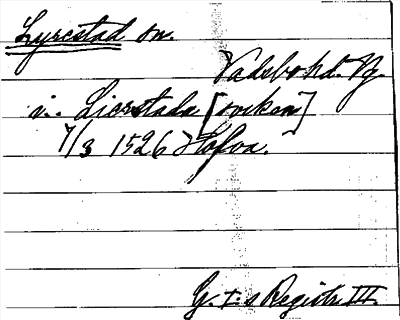 Lyrestad sn.
Vadsbo hd. Vg.
i.. Liorstada [socken]
7/3 1526 Hofva.
G. I:s Registr. III.